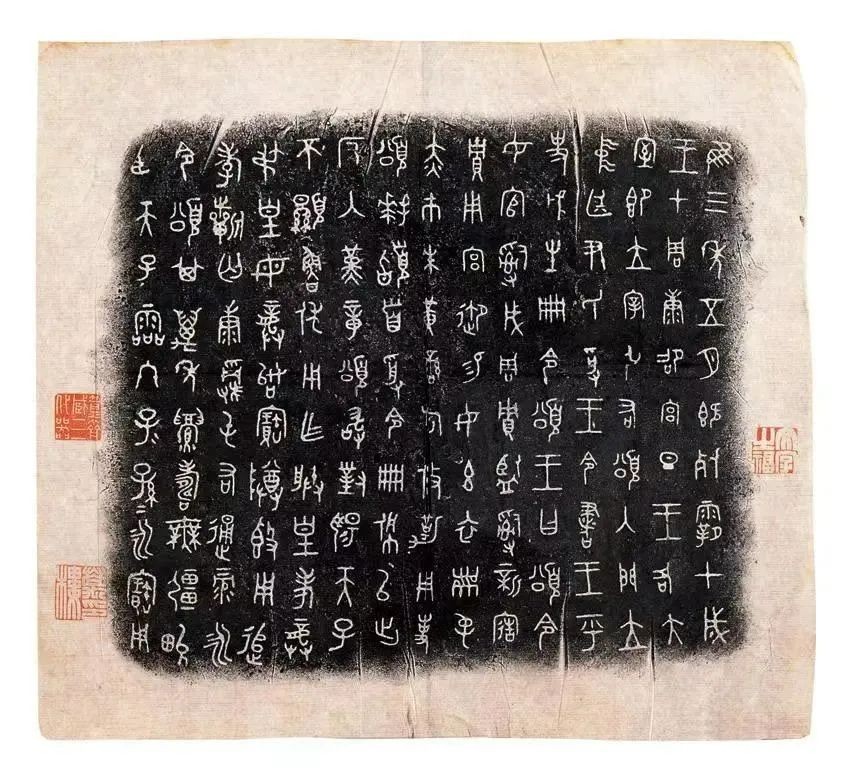 隹三年五月既死霸甲戌
王才周康卲宮旦王各大
室即立宰弘右頌入門立
中廷尹氏受王令書王乎
史虢生冊令頌王曰頌令
女官𤔲成周貯監𤔲新寤
貯用宮御易女玄衣黹屯
赤巿朱黃䜌旂攸勒用事
頌拜𩒨首受令冊佩以出
反入堇章頌敢對揚天子
不顯魯休用乍朕皇考龏
弔皇母龏始寶尊𣪘用追
孝𣄨匄康𩁹屯右通彔永
令頌其萬年眉壽無疆畯
臣天子霝冬子子孫孫永寶用